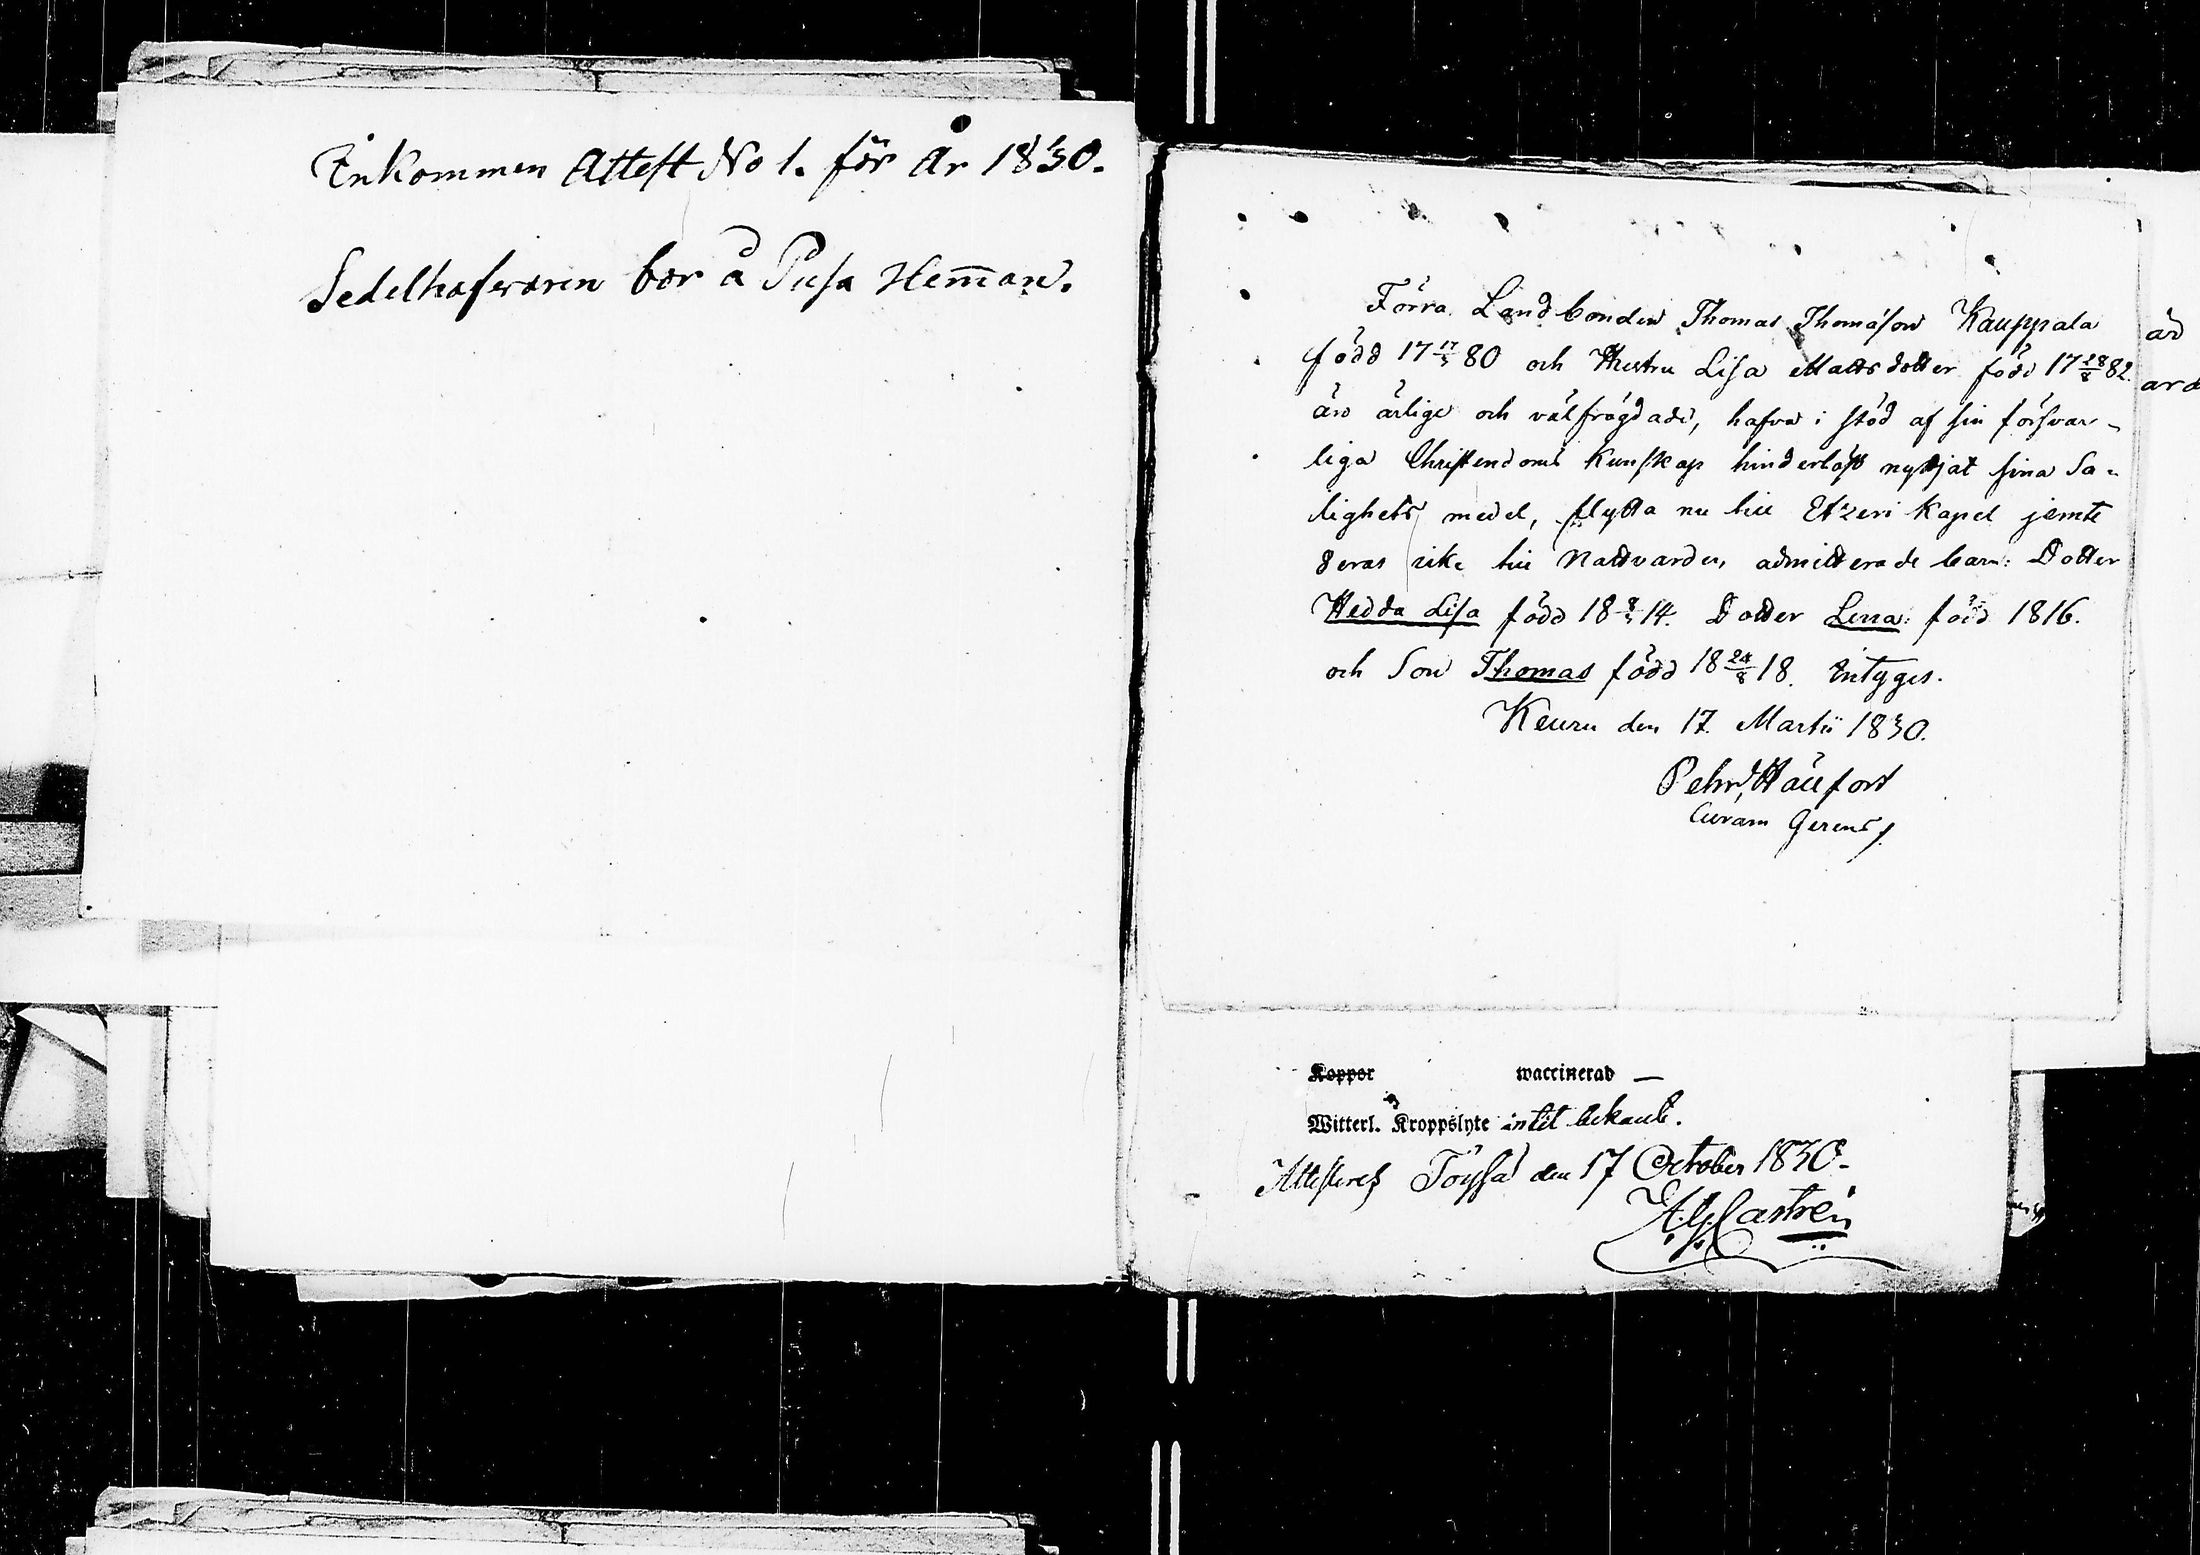 Inkommen Attest No 1. för År 1830.
Sedelhafvaren bor å Pusa Hem̅an.
Förra Landbonden Thomas Thomasson Kauppala
född 17 80 och Hustru Lisa Mattsdotter född 17 28/8 82.
äro ärlige och välfrägdade, hafva i stöd af sin försvar-
liga Christendoms Kunskap hinderlöst nyttjat sina Sa-
lighets medel, flytta nu till Etzeri Kapel jemte
deras icke till Nattvarden admitterade barn: Dotter
Hedda Lisa född 18 14. Dotter Lena född 1816.
och Son Thomas född 18 24/8 18. intyges.
Keuru den 17. Martii 1830.
Pehr Hällfors
Curam Gerens
är
ard
Koppor waccinerad —
Witterl. Kroppslyte intet bekant.
Attesteras Töysä den 17 October 1830.
Castrén